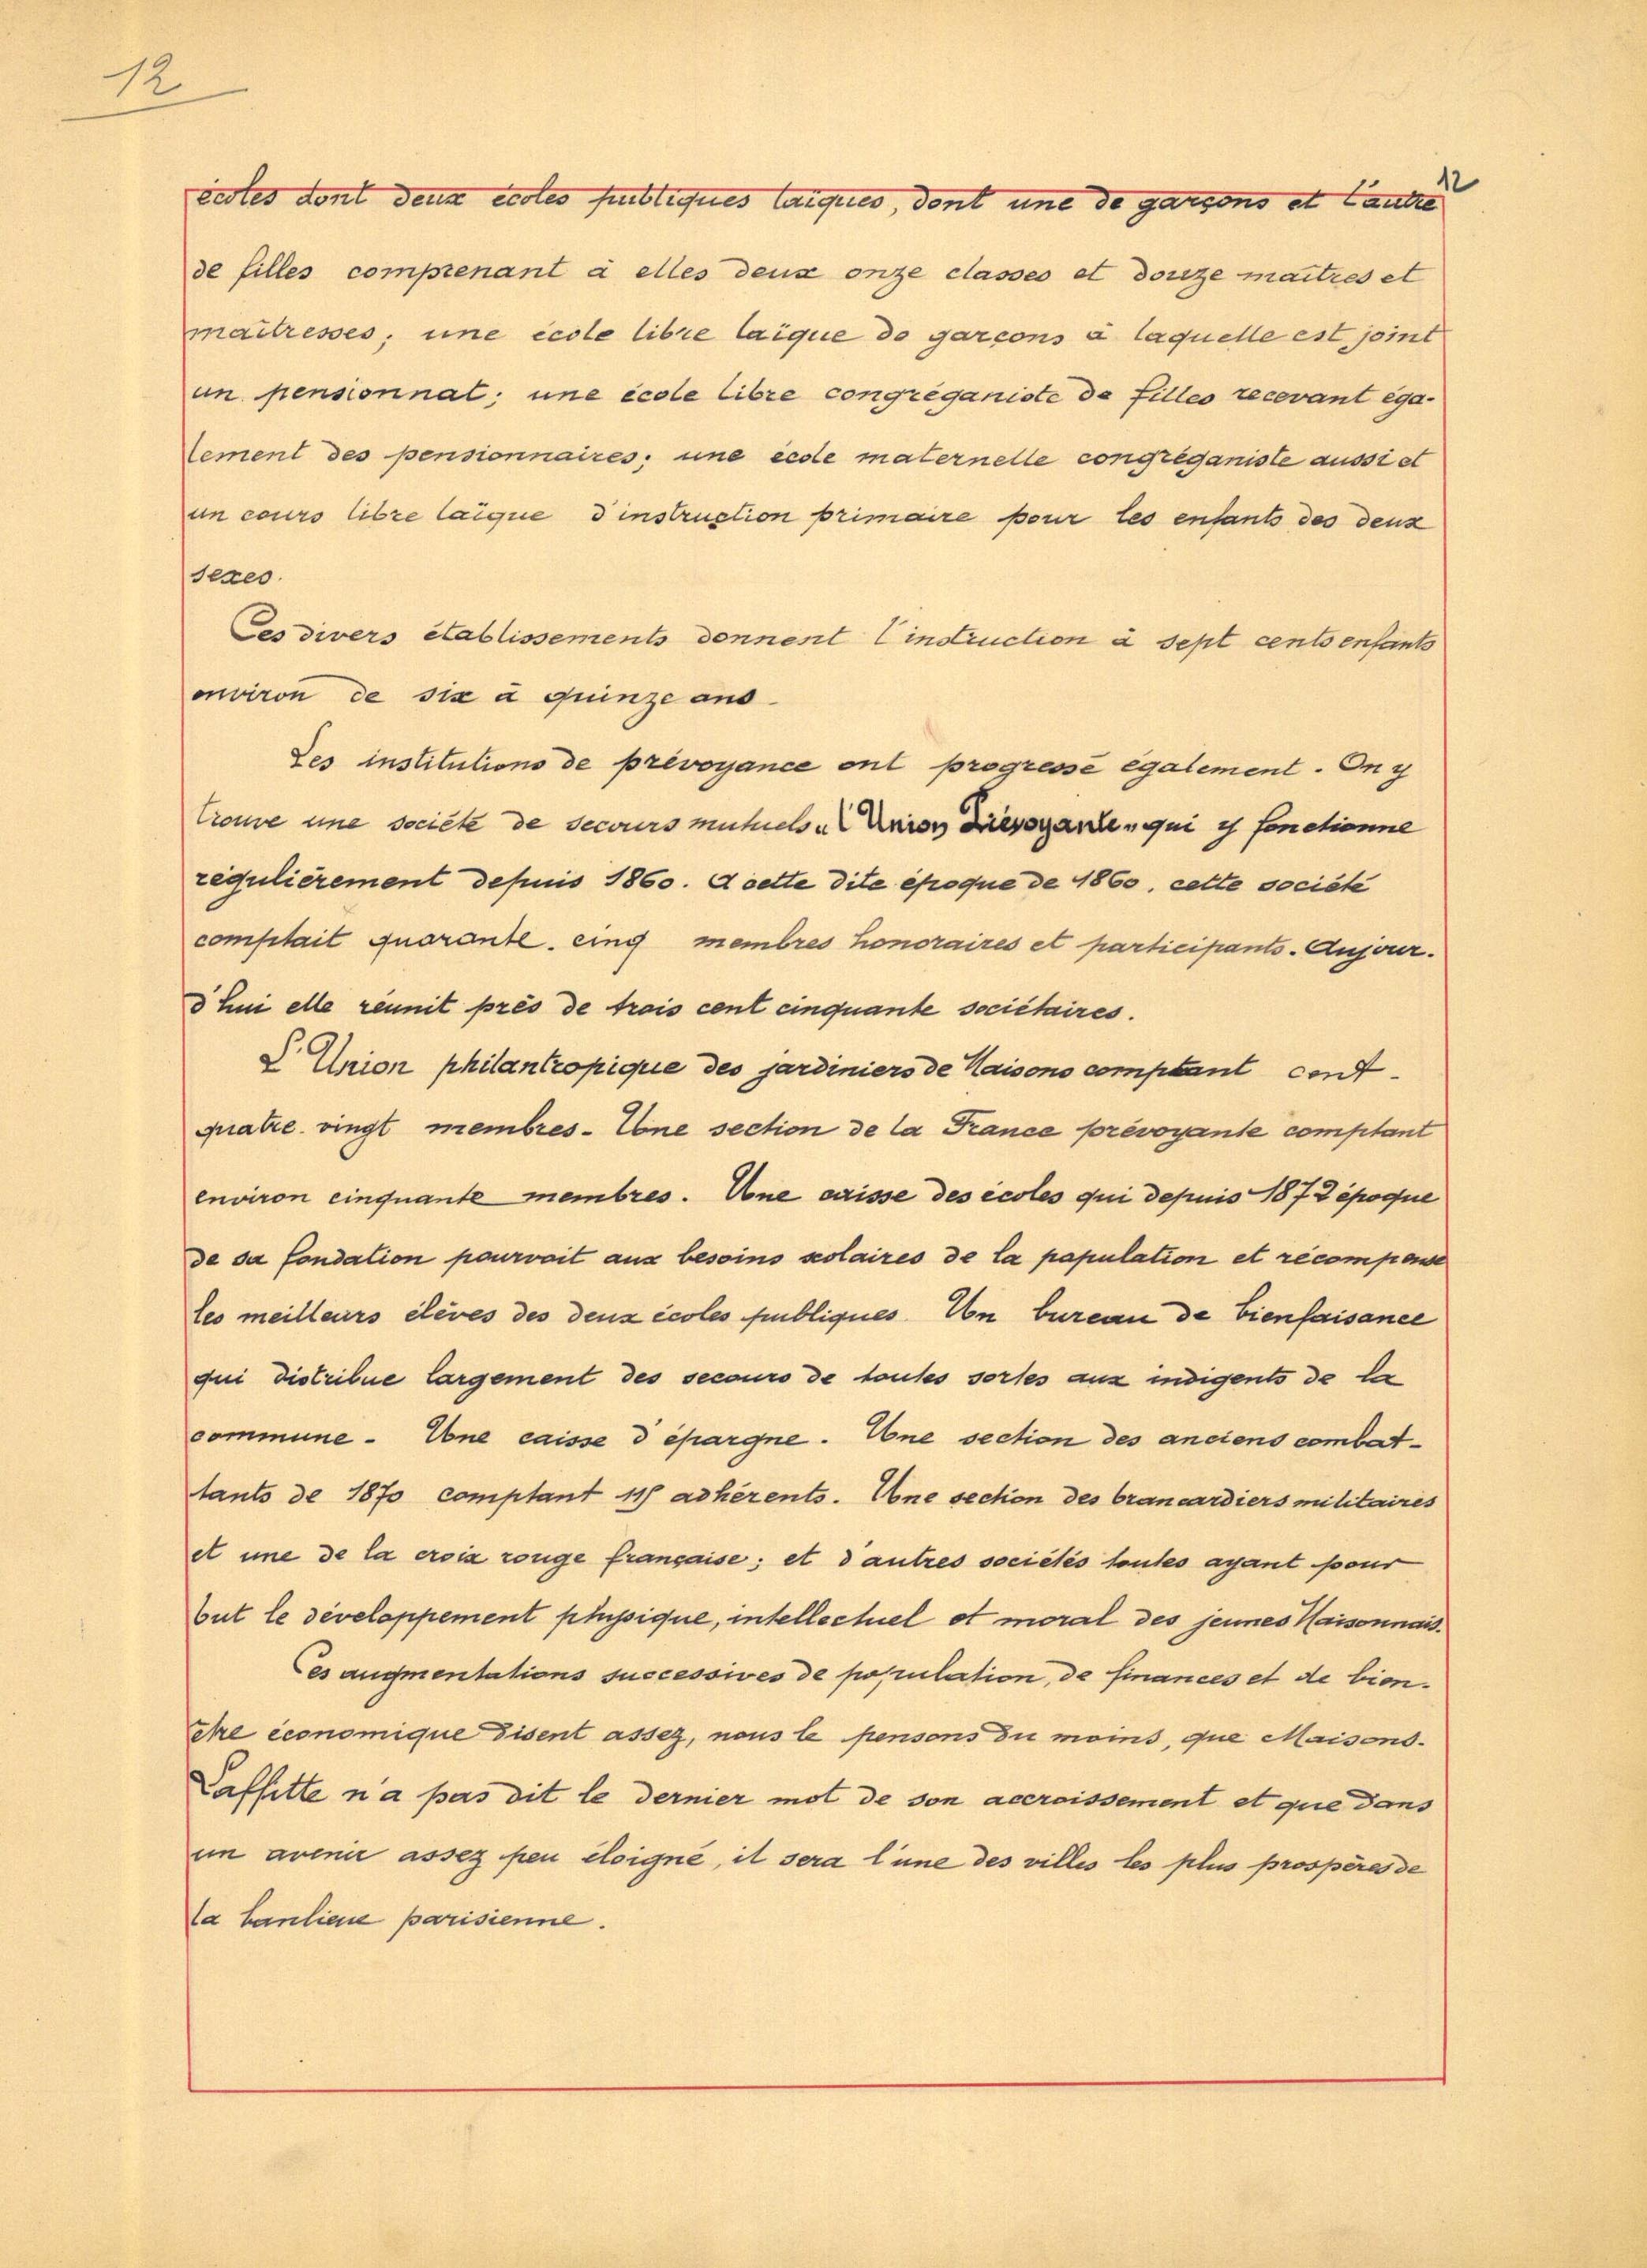 12
12
écoles dont deux écoles publiques laïques, dont une de garçons et l'autre
de filles comprenant à elles deux onze classes et douze maîtres et
maîtresses; une école libre laïque de garçons à laquelle est joint
un pensionnat; une école libre congréganiste de filles recevant éga-
lement des pensionnaires; une école maternelle congréganiste aussi et
un cours libre laïque d'instruction primaire pour les enfants des deux
sexes.
Ces divers établissements donnent l'instruction à sept cents enfants
environ de six à quinze ans
Les institutions de prévoyance ont progressé également. On y
trouve une société de secours mutuels "L'Union Prévoyante" qui y fonctionne
régulièrement depuis 1860. A cette dite époque de 1860, cette société
comptait quarante-cinq membres honoraires et participants. Aujour-
d'hui elle réunit près de trois cent cinquante sociétaires.
L'Union philantropique des jardiniers de Maisons comptant cent-
quatre-vingt membres. Une section de la France prévoyante comptant
environ cinquante membres. Une caisse des écoles qui depuis 1872 époque
de sa fondation pourvoit aux besoins scolaires de la population et récompense
les meilleurs élèves des deux écoles publiques. Un bureau de bienfaisance
qui distribue largement des secours de toutes sortes aux indigents de la
commune. Une caisse d'épargne. Une section des anciens combat-
tants de 1870 comptant adhérents. Une section des brancardiers militaires
et une de la croix rouge française; et d'autres sociétés toutes ayant pour
but le développement physique, intellectuel et moral des jeunes Maisonnais.
Ces augmentations successives de population, de finances et de bien-
être économique disent assez, nous le pensons du moins, que Maisons-
Laffitte n'a pas dit le dernier mot de son accroissement et que dans
un avenir assez peu éloigné, il sera l'une des villes les plus prospères de
la banlieue parisienne.